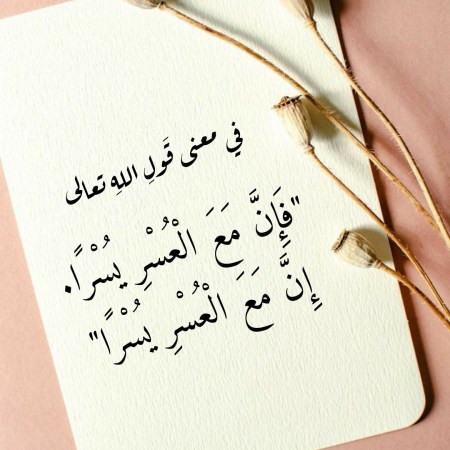 في معنى قَولِ اللهِ تعالى
"فَإِنَّ مَعَ الْعُسْرِ يُسْرًا.
إِنَّ مَعَ الْعُسْرِ يُسْرًا"